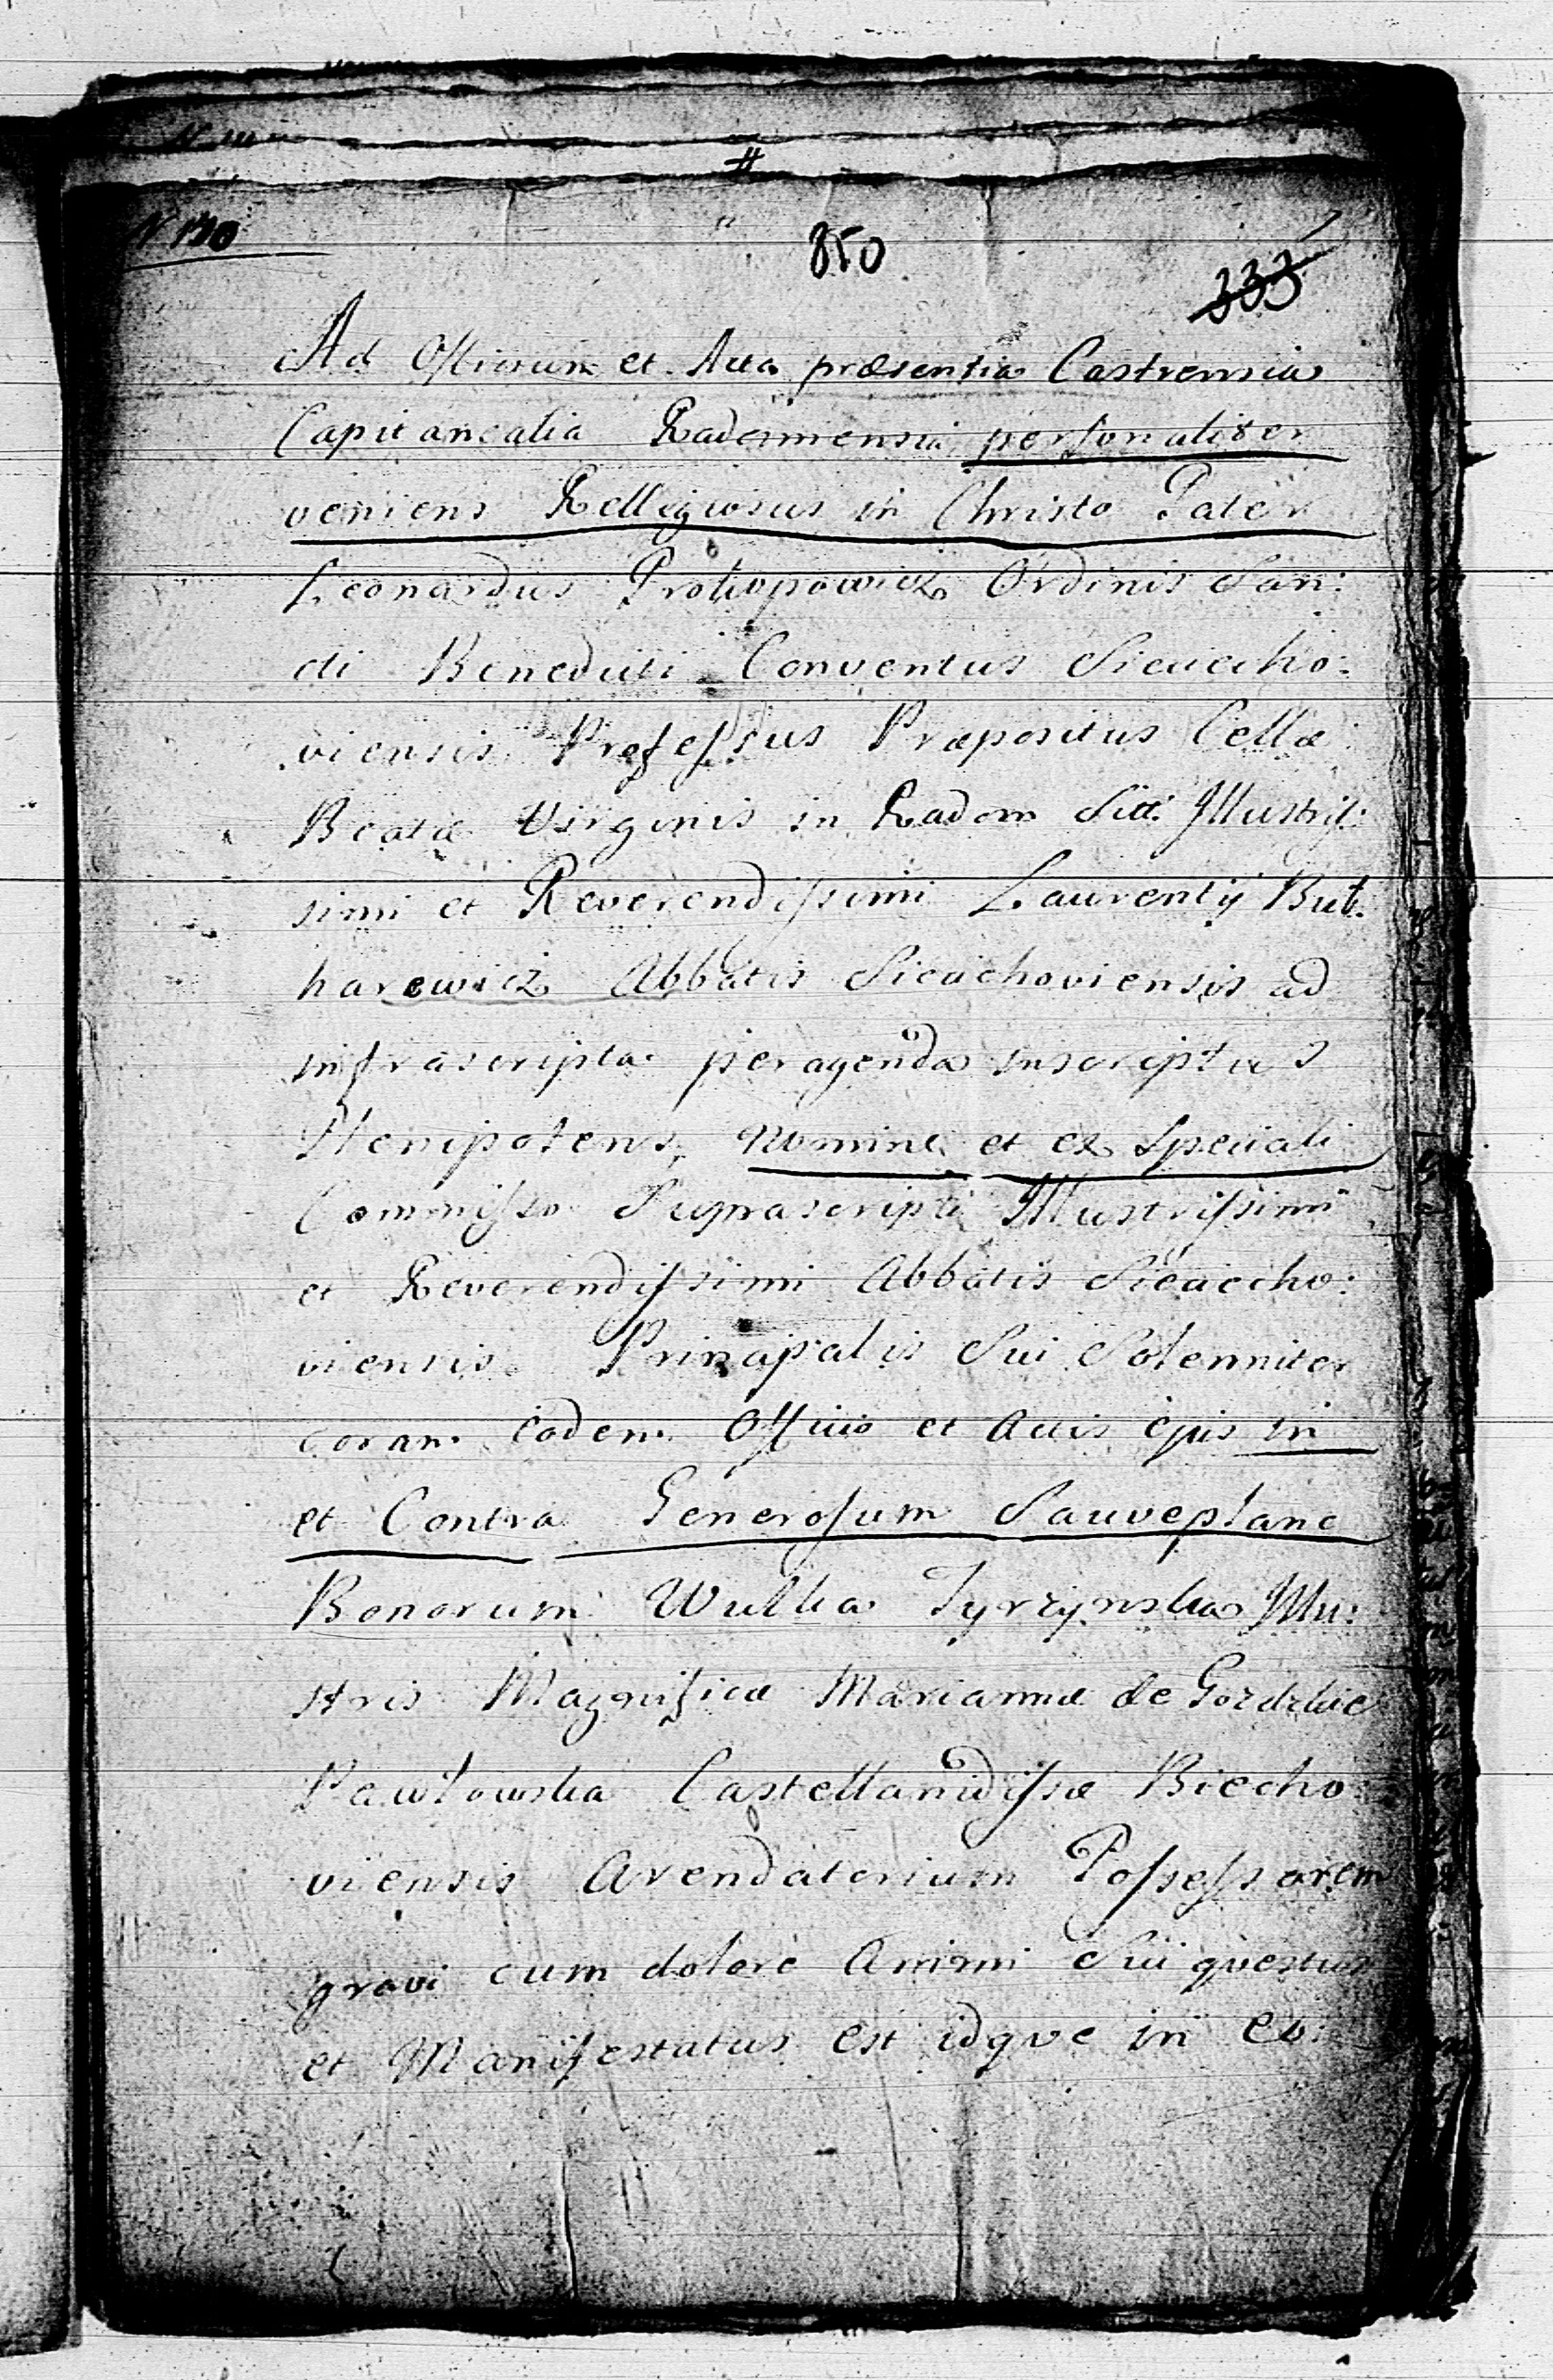 #
850
333
Ad Officium et Acta præsentia Castrensia
Capitanealia Radomiensia personaliter
veniens Relligiosus in Christo Pater
Leonardus Protopowicz Ordinis San:
cti Benedicti Conventus Sieciecho:
viensis Professus Præpositus Cellæ
Beatæ Virginis in Radom Sitt: Illustris:
simi et Reverendissimi Laurentij But:
harewicz Abbatis Sieciechoviensis ad
infrascripta peragenda inscriptus
Plenipotens, nomine et ex Speciali
Commisso Suprascripti Illustrissimi
et Reverendissimi Abbatis Sieciecho:
viensis Principalis Sui Solenniter
coram eodem Officio et Actis ejus in
et Contra Generosum Sauveplane
Bonorum Wulka Tyrzynska Illu:
stris Magnificæ Mariannæ de
Pawłowska Castellanidissæ Biecho:
viensis Arendatorium Possessorem
gravi cum dolore Animi Sui qvestus
et Manifestatus est idqve in eo: